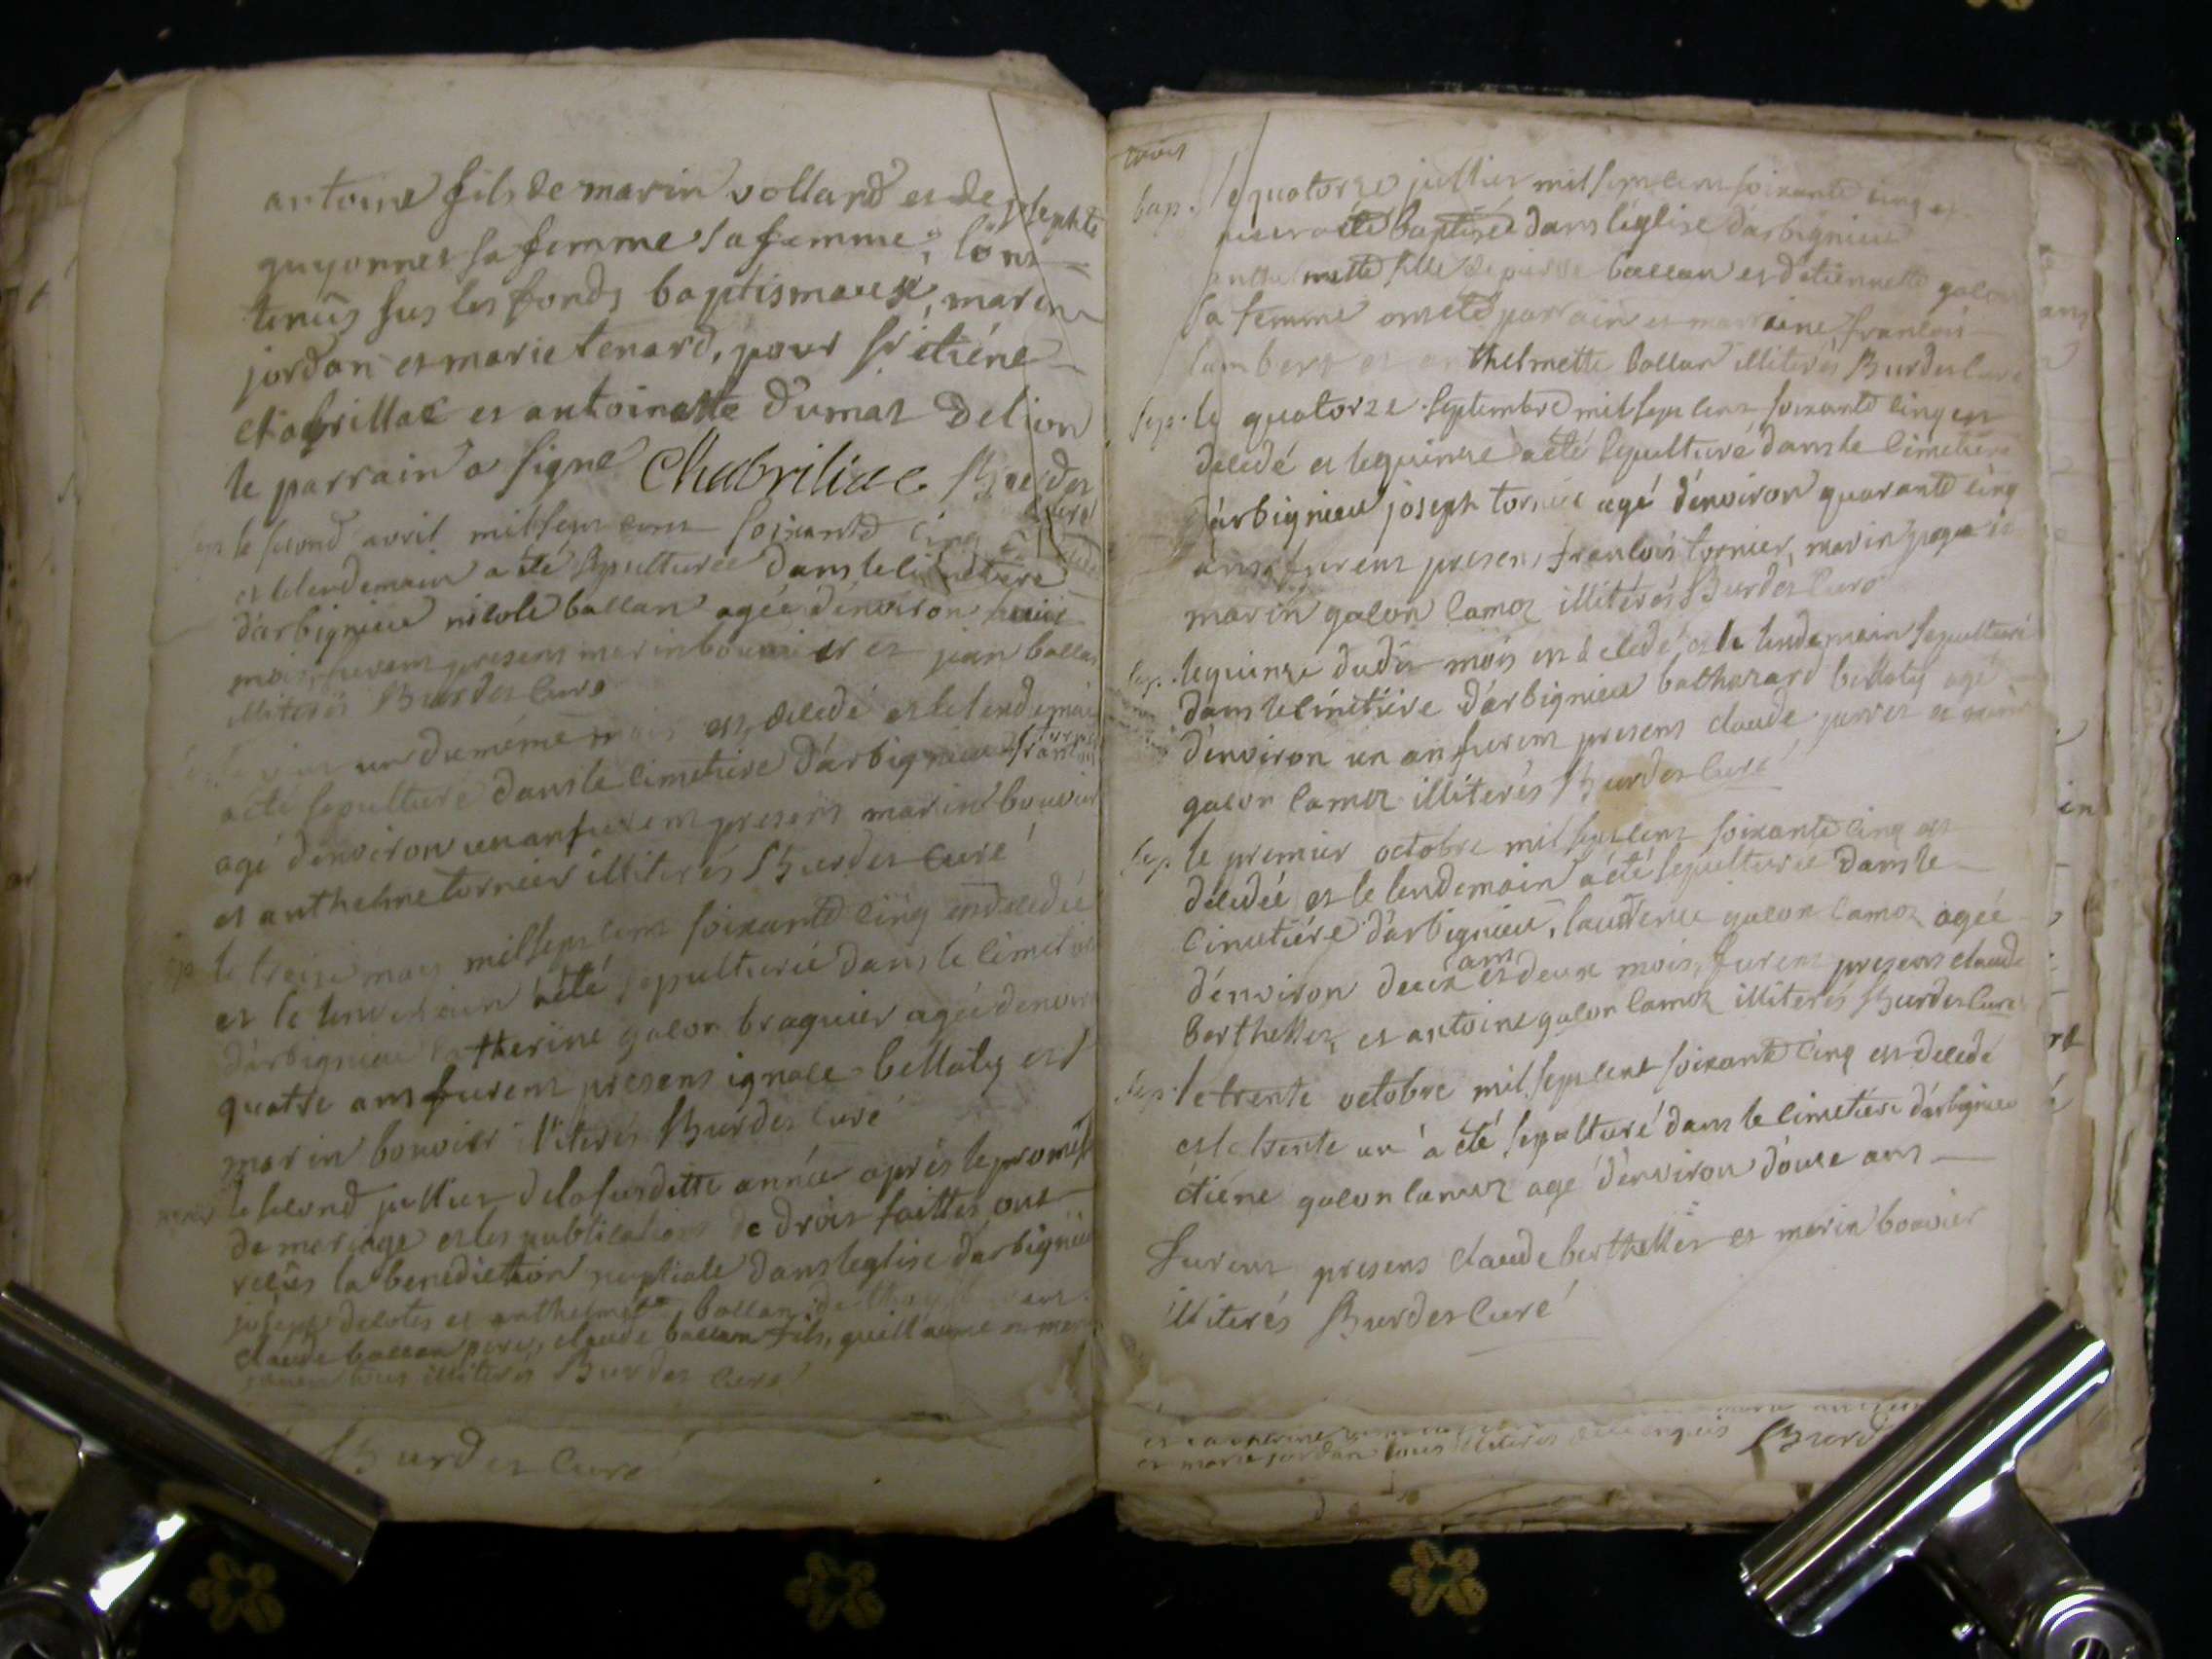 antoine fils de marin vollard et de josephte
guyonnet sa femme sa femme, l'ont
tenûs sus les fonds baptismaux, marin
jordan et marie tenard, pour sr etiéne
chabrillac et antoinette dumas de lion
le parrain a signé Chabriliac Burdet
curé
le second avril mil sept cent soixante cinq
et lelendemain a été sepulturée dans le cimetiere
d'arbignieu nicole ballan agée d'environ
mois, furent presens marin bouvier et jean ballan
illiterés Burdet curé
un du même mois est decedé et lelendemain
a été sepulturé dans le cimetiere d'arbignieu
agé d'environ un an furent presens marin bouvier
et anthelme tornier illiterés Burdet curé
le treize mars mil sept cent soixante cinq est decedée
et le lendemain a été sepulturée dans le cimetiere
d'arbignieu catherine galon braquier agée d'environ
quatre ans furent presens ignace bellaty et
marin bouvier illiterés Burdet curé
le second juillet de la susditte année après le promesse
de mariage et les publications de droit faittes ont
reçûs la benediction nuptiale dans leglise d'arbignieu
joseph et anthelmette ballan
claude ballan pere, claude ballan fils, guillaume
illiterés Burdet curé
Burdet curé
bap. le quatorze juillet mil sept cent soixante cinq et
été baptisée dans l'église d'arbignieu
fille de pierre ballan et d'etiennette galon
sa femme ont été parrain et marraine françois
lambert et anthelmette ballan illiterés Burdet curé
sep. le quatorze septembre mil sept cent soixante cinq est
decedé et lequinze a été sepulturé dans le cimetiere
d'arbignieu joseph tornier agé d'environ quarante cinq
ans furent presens françois tornier, marin
marin galon lamoz illiterés Burdet curé
sep. lequinze dudit mois est decedé, et le lendemain sepulturé
dans le cimetiére d'arbignieu balthazard bellaty agé
d'environ un an furent presens claude et
galon lamoz illiterés Burdet curé
sep. le premier octobre mil sept cent soixante cinq est
decedée et le lendemain a été sepulturée dans le
cimetiére d'arbignieu, galon lamoz agée
d'environ deux ans et deux mois, furent presens claude
berthellet, et antoine galon lamoz illiterés Burdet curé
sep. le trente octobre mil sept cent soixante cinq est decedé
et le trente un a été sepulturé dans le cimetiere d'arbignieu
etiéne galon lamoz agé d'environ douze ans
furent presens claude berthellet et marin bouvier
illiterés Burdet curé
et marie jordan tous illiterés enquis Burdet